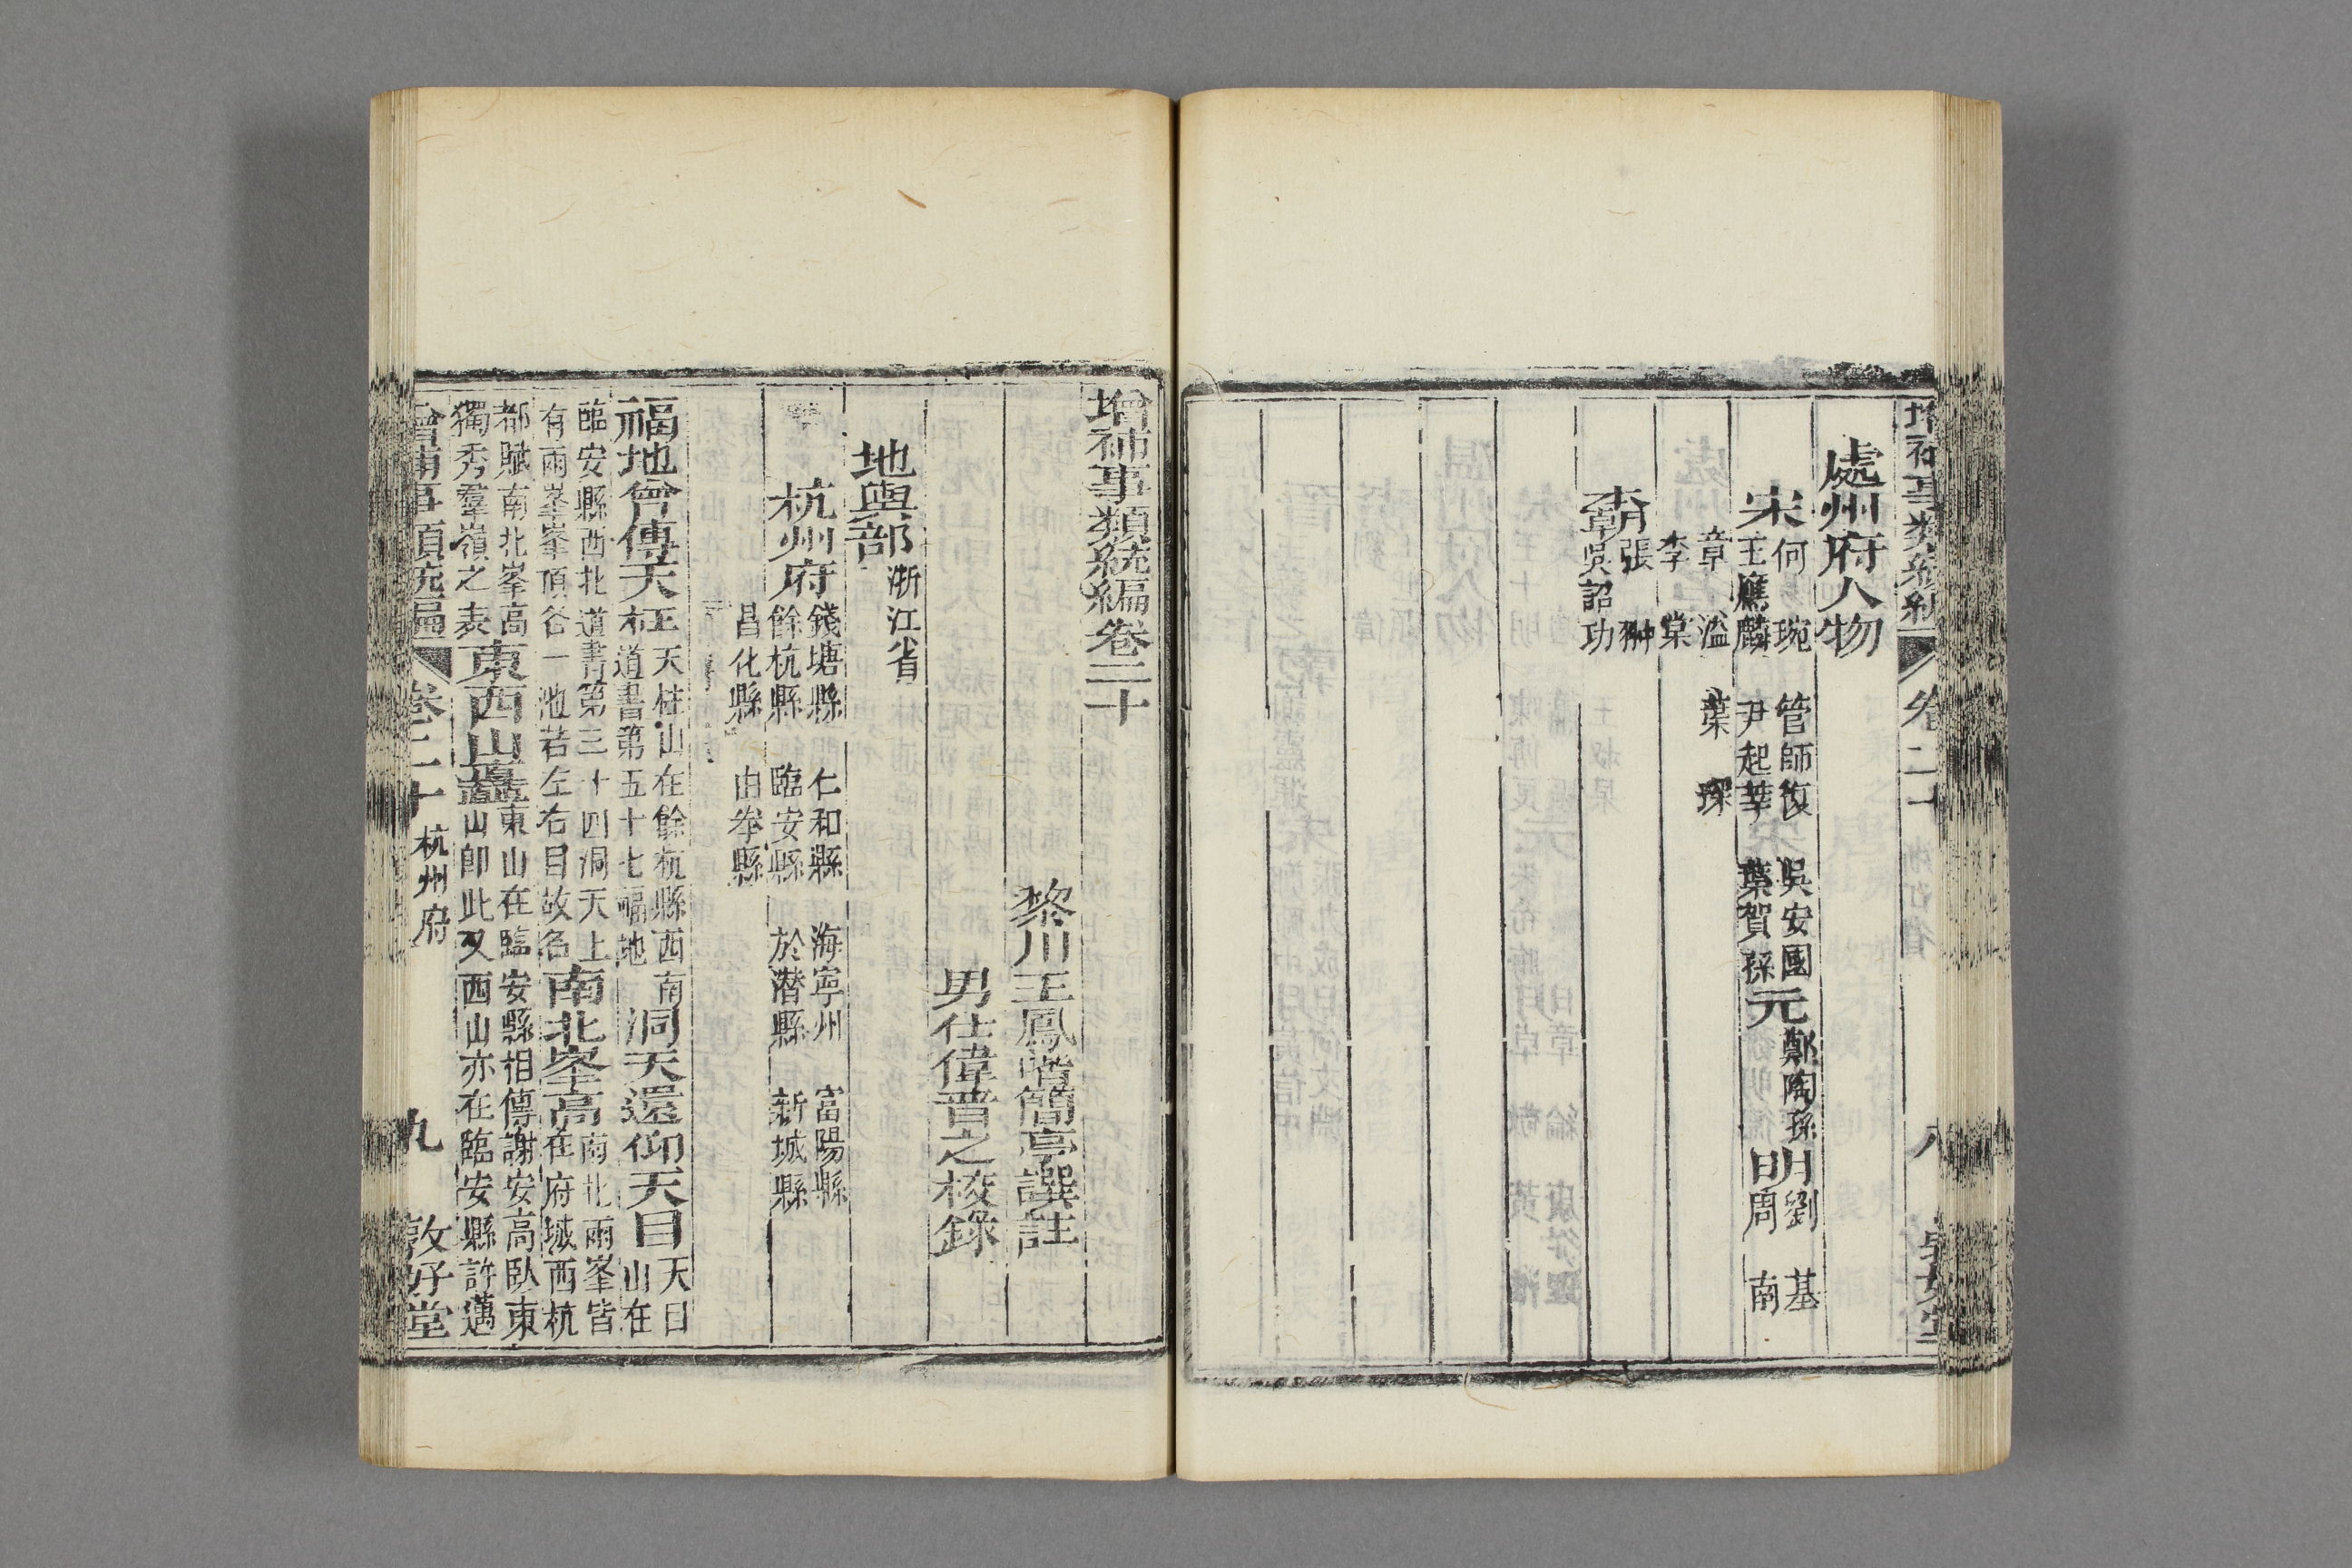 增補事類統編
卷二十
八
處州府人物
宋何琬 管師復 吳安國
王應麟 尹起莘 葉賀孫
元鄭陶孫
明劉基
周南
章溢 葉琛
李棠
張翀
吳詔功
增補事類統編卷二十
黎川王鳳喈簡亭譔註
男仕偉晋之校錄
地輿部浙江省
杭州府錢塘縣 仁和縣 海寧州 富陽縣
餘杭縣 臨安縣 於潛縣 新城縣
昌化縣 由拳縣
福地曾傳天柱天柱山在餘杭縣西南
道書第五十七福地
洞天還仰天目天目
山在
臨安縣西北道書第三十四洞天上
有兩峯峯頂各一池若左右目故名
南北峯高南北兩峯皆
在府城西杭
都賦南北峯高
獨秀羣嶺之表
東西山蠢東山在臨安縣相傳謝安高臥東
山卽此又西山亦在臨安縣許邁
增補事類統編
卷二十
杭州府
九
敦好堂